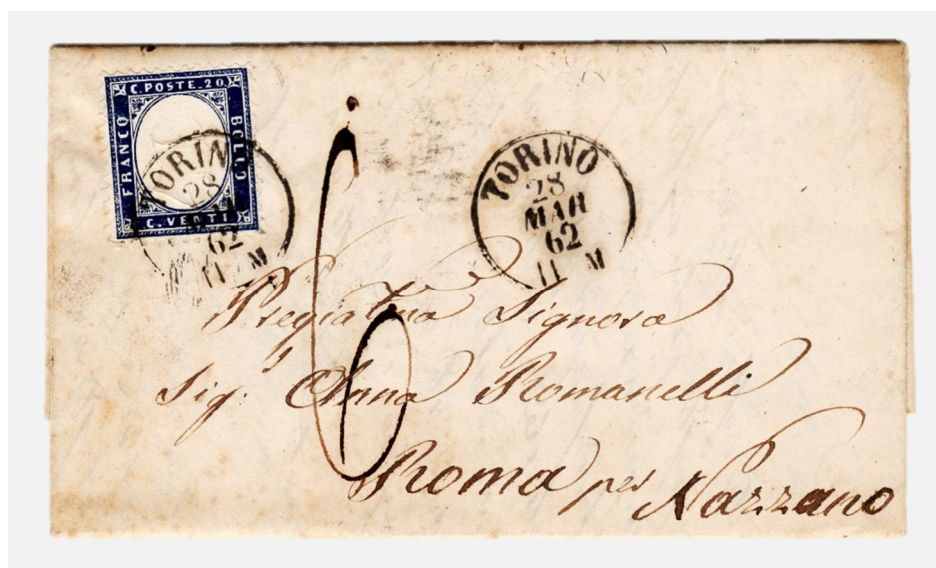 C. POSTE. 20
FRANCO
BOLLO
C. VENTI
TORINO
28
62
11 M
TORINO
28
MAR
62
11 M
6
Pregiatma Signora
Sig.ª Anna Romanelli
Roma per Nazzano